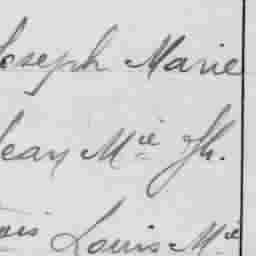 Joseph Marie
Jean Mie Jh.
çois Louis Mie